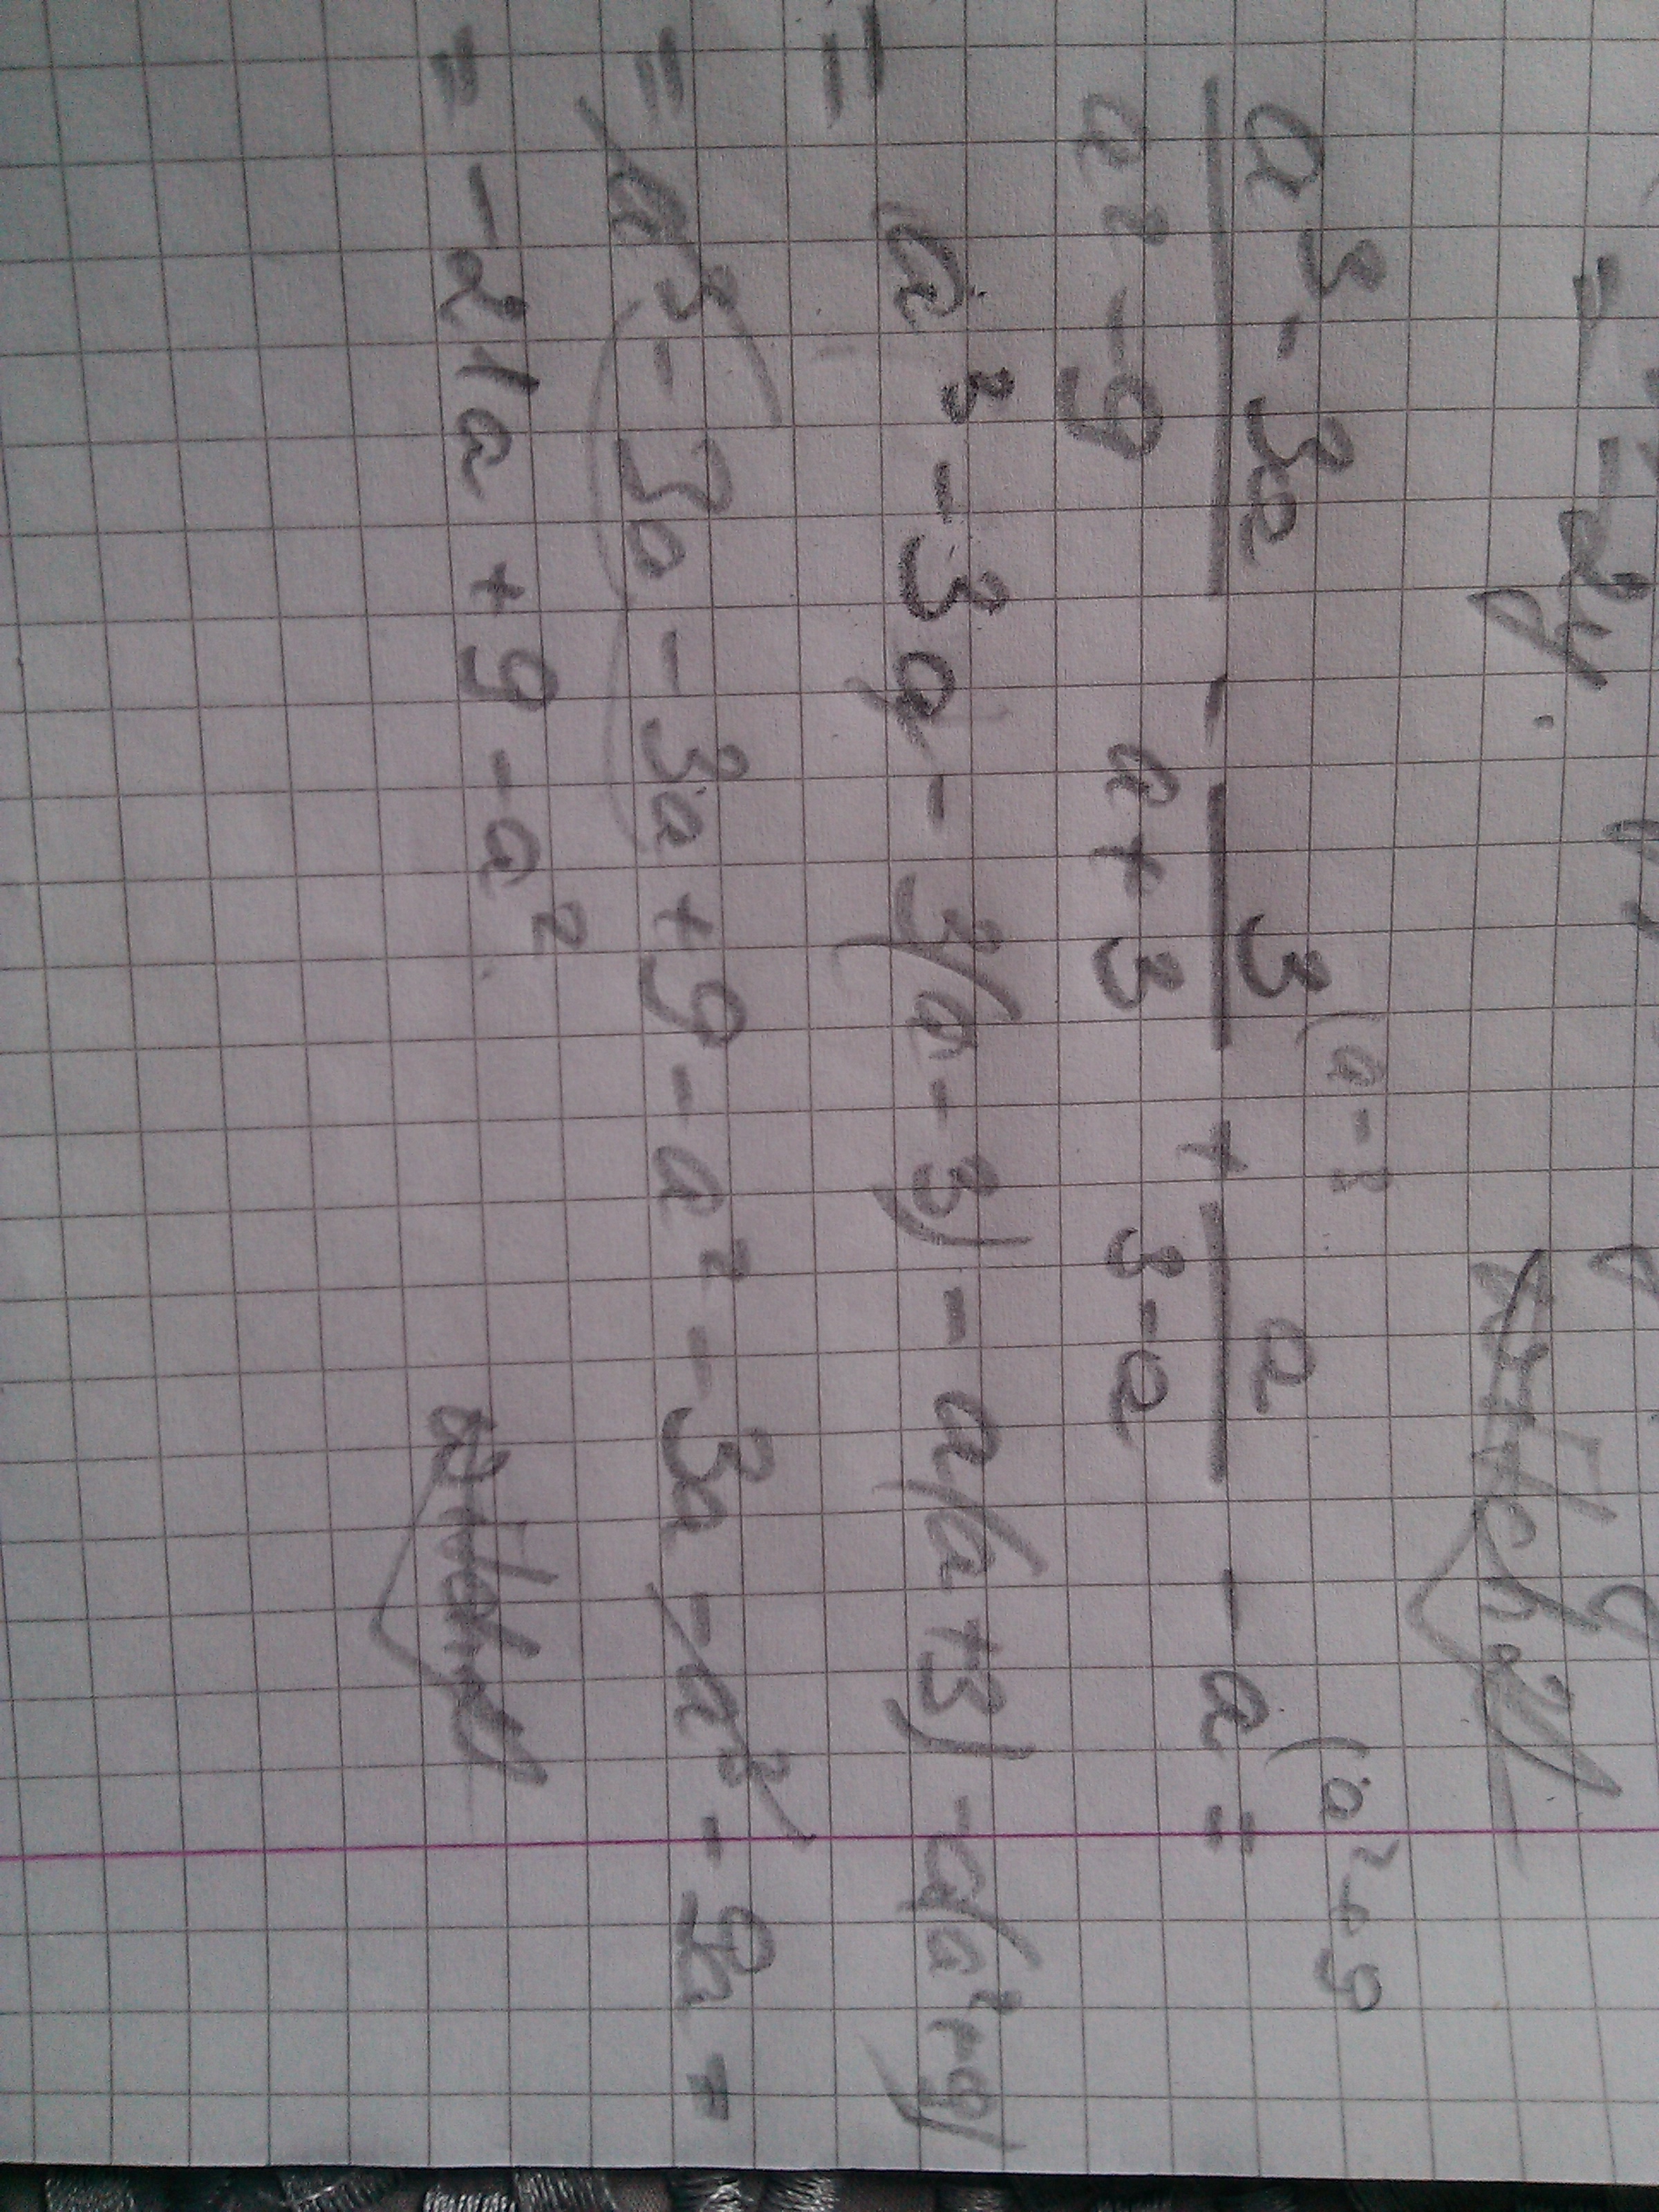 = -2y
a³ - 3a   3(a-3   a   (a²-9
— - — + — - a =
a² - 9   a + 3   3 - a
= a³ - 3a - 3(a - 3) - a(a + 3) - a(a²-9)
= a³ - 3a - 3a + 9 - a² - 3a - a³ - 9a =
= - 21a + 9 - a²